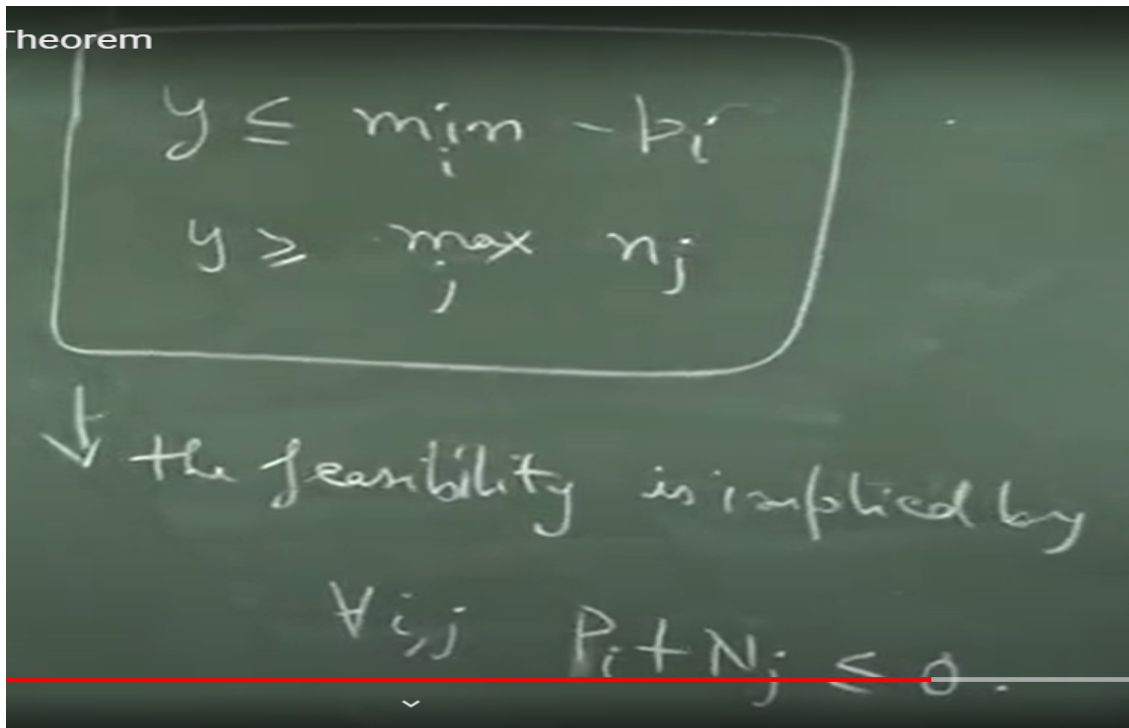 Theorem
y ≤ min_i - p_i
y ≥ max_j n_j
↓ the feasibility is implied by
∀ i,j P_i + N_j ≤ 0.